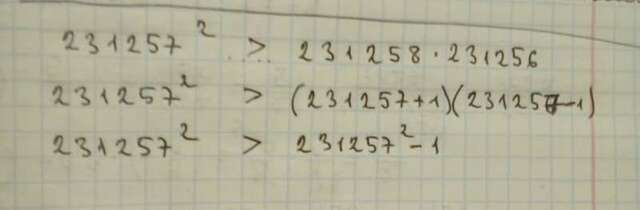 231257² > 231258·231256
231257² > (231257+1)(231257-1)
231257² > 231257²-1